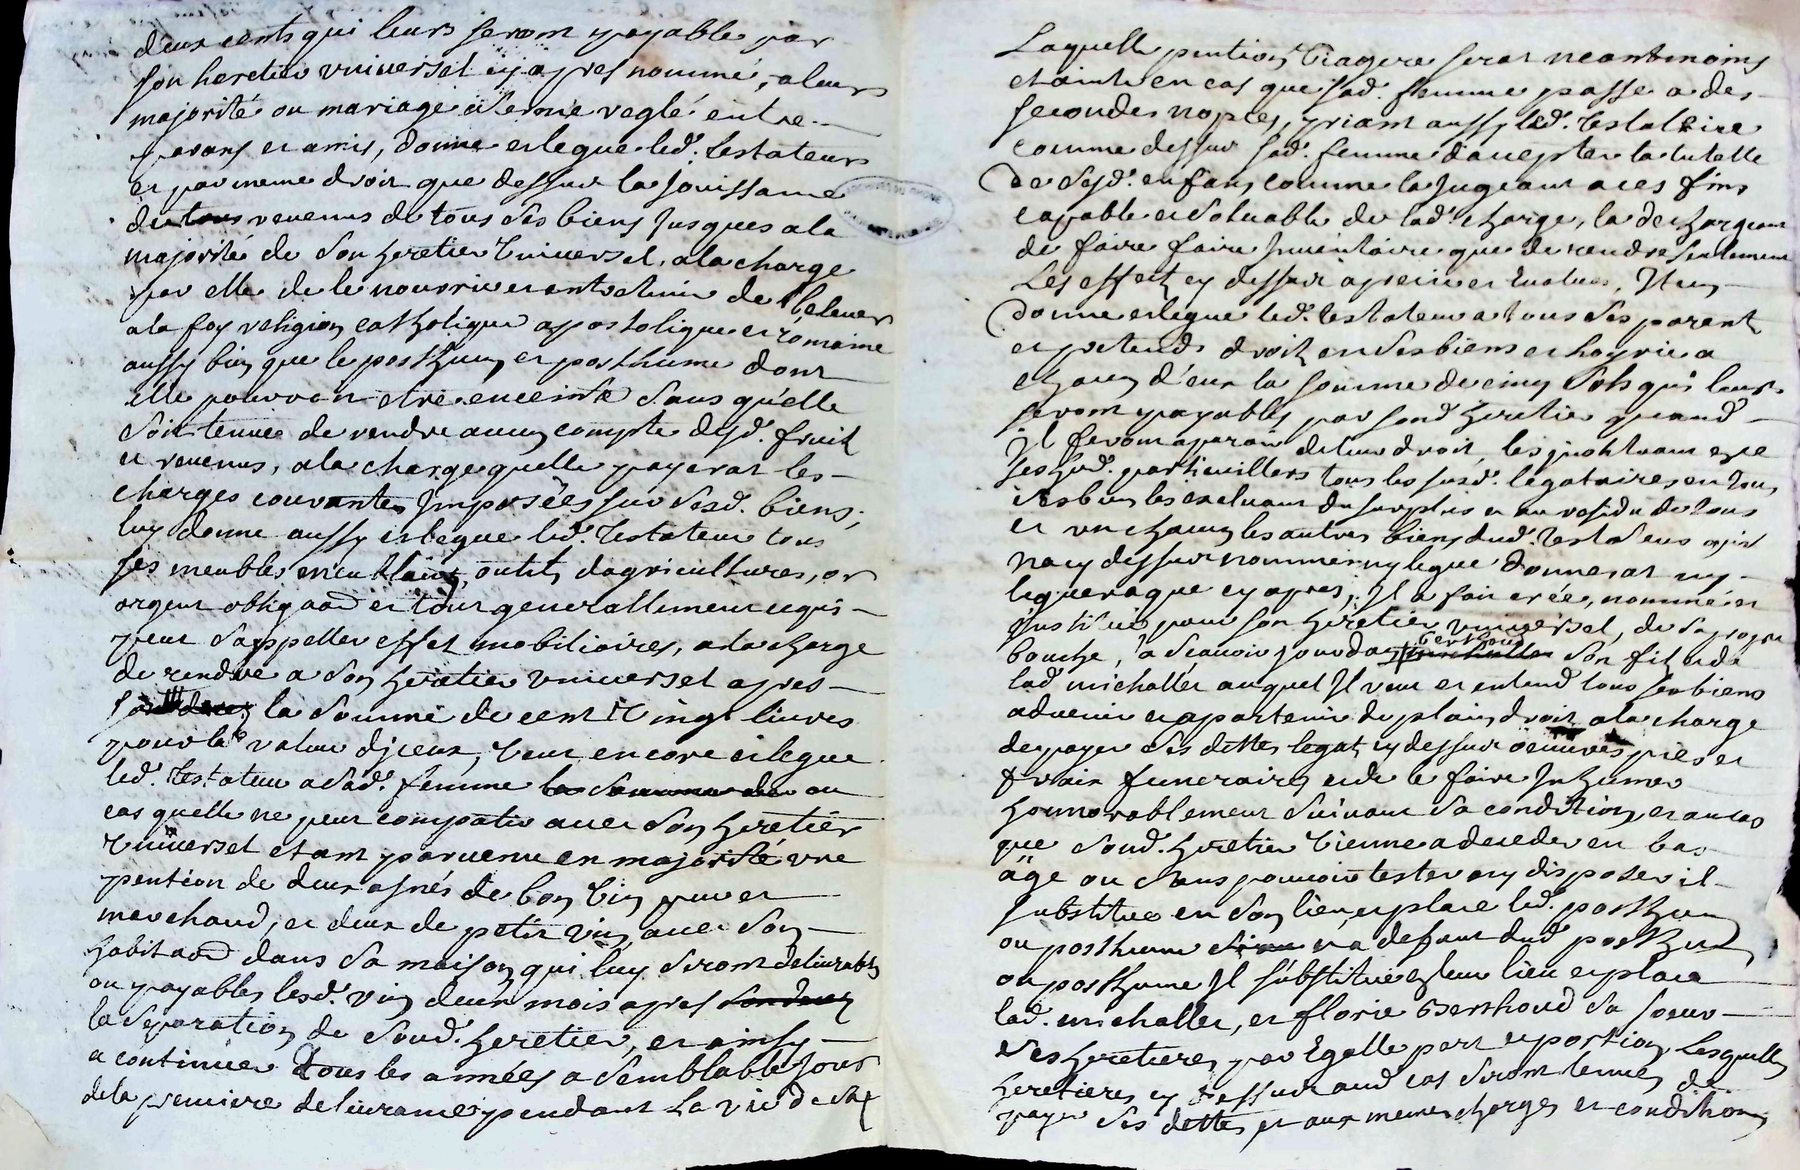 deux cents qui leurs seront payable par
son heretier vniversel cy apres nommé, a leurs
majorité ou mariage a terme reglé entre
parans et amis, donne et legue led. testateur
et par meme droit que dessus la Jouissance
de tous revenus de tous ses biens Jusques a la
majorité de son heretier Vniversel, a la charge
par elle de le nourrir et entretenir de l'elever
a la foy religion catholique apostolique et romaine
aussy bien que le posthum et posthume dont
elle pourroit etre enceinte sans qu'elle
soit tenuee de rendre aucun compte desd. fruit
et revenus, a la charge quelle payerat les
charges courantes Imposées sur sesd. biens,
luy donne aussy et legue led. testateur tous
ses meubles meublants, outils dagricultures, or
argent obligaõn et tout generallement ce qui
peut sappeller effet mobiliaires, a la charge
de rendre a son heretier vniversel apres
la somme de cent Vingt livres
pour la valeur djceux, Veut encore et legue
led. testateur a sad. femme la somme de au
cas quelle ne peut compatir avec son heretier
Vniversel etant parvenu en majorité vne
pention de deux asnés de bon Vin pur et
marchand, et deux de petit vin, avec son
habitaõn dans sa maison qui luy seront delivrables
ou payables lesd. vin deux mois apres
la separation de soud. heretier, et ainsy
a continuer tous les années a semblable Jour
de la premiere delivrance pendant la vie de sad.
Laquelle pention Viagere serat neantmoins
etainte en cas que sad. femme passe a des
secondes nopces, priant aussy led. testateur
comme dessus sad. femme d'accepter la tutelle
de sesd. enfans comme la Jugeant a ces fins
capable et solvable de lad. charge, la dechargeant
de faire faire Jnventaire que de rendre seulement
les effects cy dessus apreciez et evaluez, Item
donne et legue led. testateur a tous ses parent
et pretends droit en ses biens et hoyrie a
chacun d'eux la somme de cinq sols qui leur
seront payables par sond heretier quand
Jl feront aparoir de leur droit, les jnstituant
ses hed. particuilliers tous les susd. legataires en tous
ses biens les excluant du surplus et au residu de tous
et vn chacun les autres biens dud. testateur
na cy dessus nommé ny legué donnerat ny
leguerat que cy apres; Jl a fait crée, nommé et
Jnstitué pour son heretier vniversel, de sa propre
bouche, a scavoir jourdan berthoud son fils et de
lad. michallet auquel Jl veut et entend tous ses biens
advenir et apartenir de plain droit a la charge
de payer ses dettes legat cy dessus oeuvres pies et
frais funeraires et de le faire Jnhumer
honnorablement suivant sa condition, et au cas
que soud. heretier Vienne a deceder en bas
âge ou sans pouvoir tester ou y disposer il
substitue en son lieu et place led. posthum
ou posthume et a defaut dud posthum
ou posthume Jl substitue en leur lieu et place
lad. michallet, et florie Berthoud sa soeur
ses heretieres par Egalle part et portion lesquelles
heretieres cy dessus aud cas seront tenues de
payer ses dettes et aux memes charges et conditions